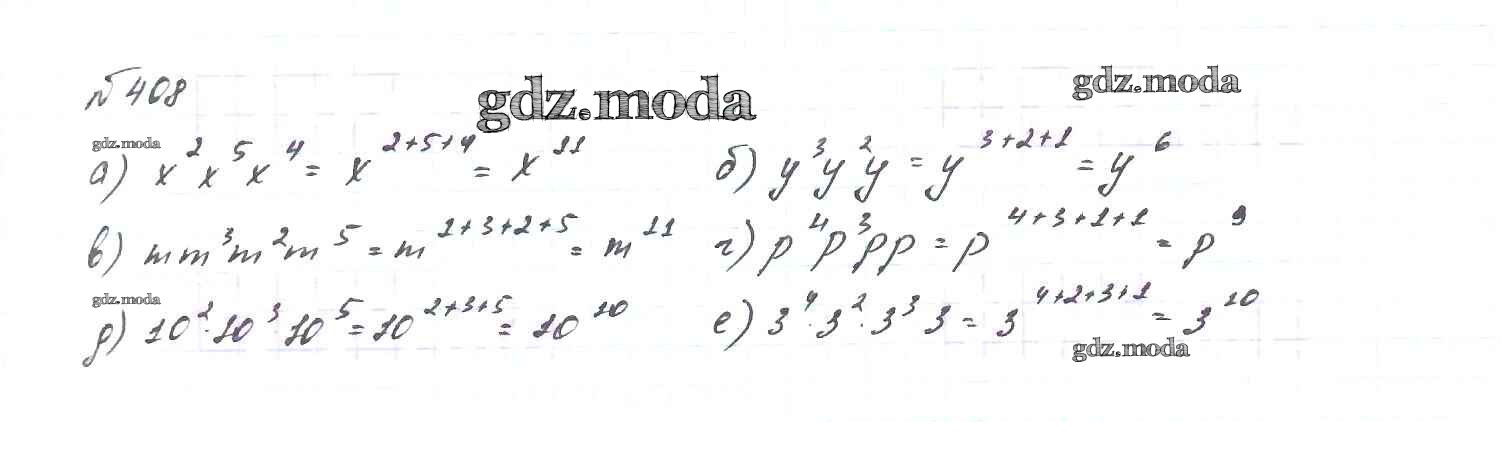 № 408
gdz.moda
gdz.moda
gdz.moda
а) x² x⁵ x⁴ = x²⁺⁵⁺⁴ = x¹¹ б) y³y²y = y³⁺²⁺¹ = y⁶
в) mm³m²m⁵ = m¹⁺³⁺²⁺⁵ = m¹¹ г) p⁴p³pp = p⁴⁺³⁺¹⁺¹ = p⁹
gdz.moda
д) 10²·10³·10⁵ = 10²⁺³⁺⁵ = 10¹⁰ е) 3⁴·3²·3³ 3 = 3⁴⁺²⁺³⁺¹ = 3¹⁰
gdz.moda